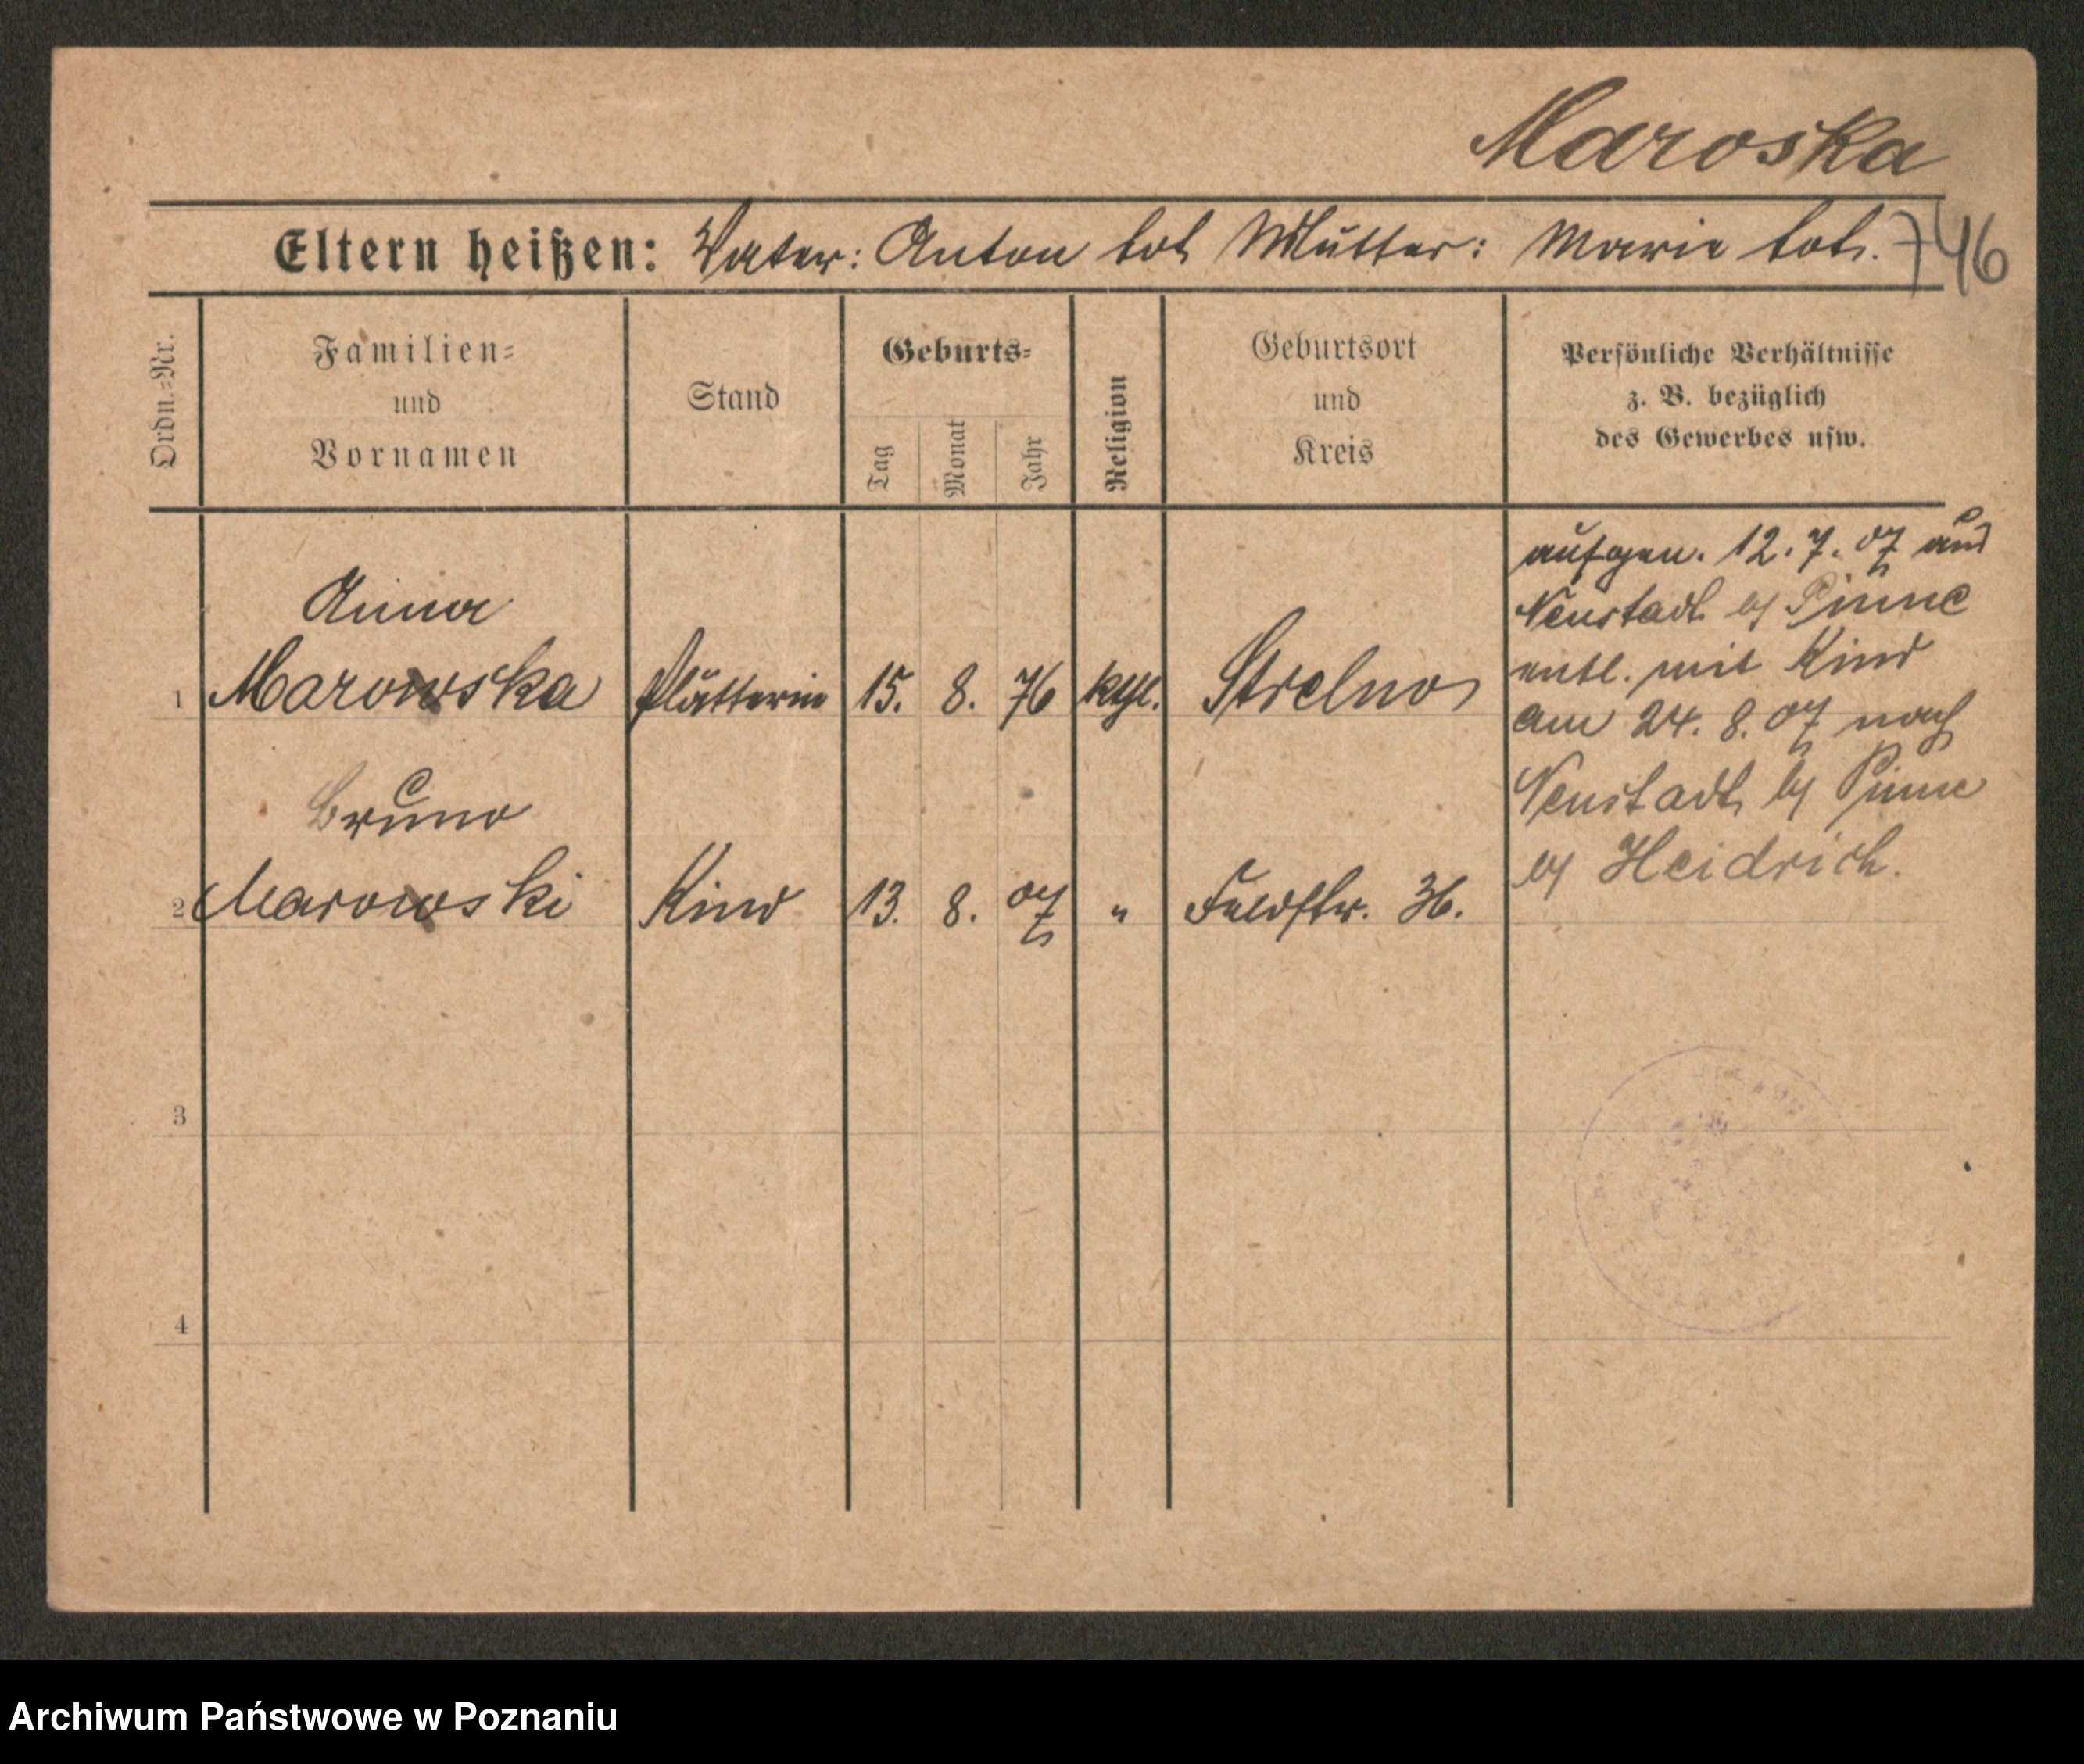 Maroska
Eltern heißen: Vater: Anton tot Mutter: Marie tot.
746
Ordn.=Nr.
Familien=
und
Vornamen
Stand
Geburts=
Tag
Monat
Jahr
Religion
Geburtsort
und
Kreis
Persönliche Verhältnisse
z. B. bezüglich
des Gewerbes usw.
Anna
1 Marowska Plätterin 15. 8. 76 kath. Strelno
aufgen. 12.7.07 aus
Neustadt b/ Pinne
entl. mit Kind
am 24.8.07 nach
Neustadt b/ Pinne
b/ Heidrich.
Bruno
2 Marowski Kind 13. 8. 07 " Feldstr. 36.
3
4
Archiwum Państwowe w Poznaniu